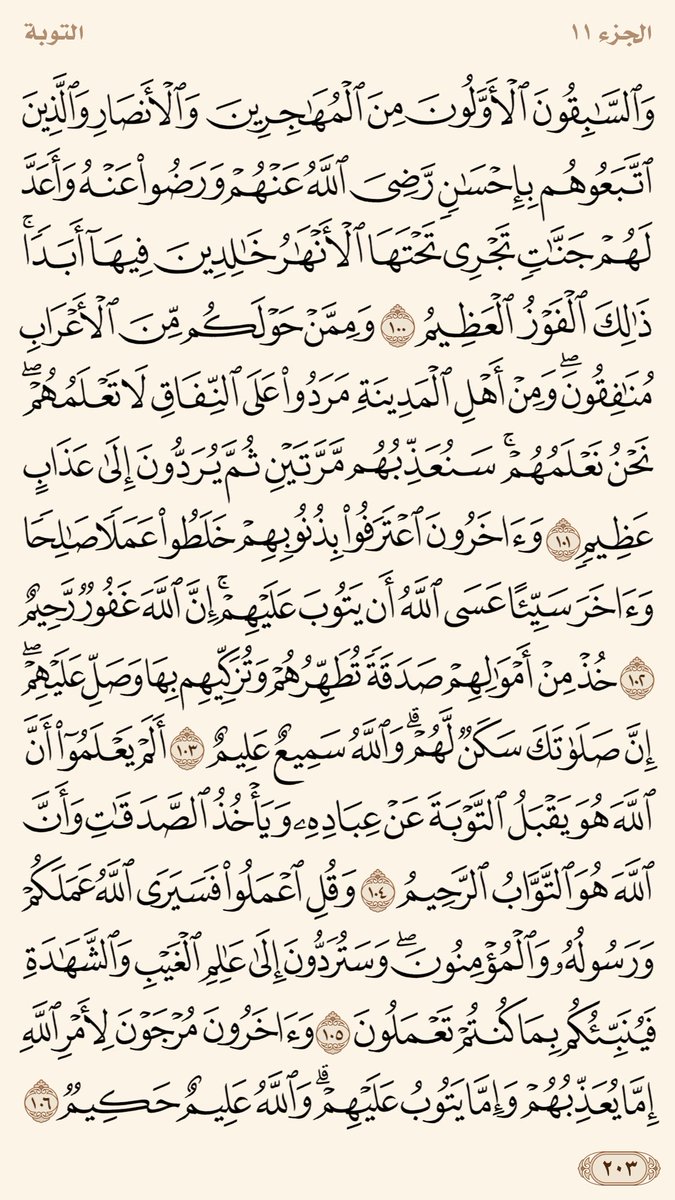 الجزء ١١
التوبة
وَٱلسَّٰبِقُونَ ٱلْأَوَّلُونَ مِنَ ٱلْمُهَٰجِرِينَ وَٱلْأَنصَارِ وَٱلَّذِينَ
ٱتَّبَعُوهُم بِإِحْسَٰنٍ رَّضِىَ ٱللَّهُ عَنْهُمْ وَرَضُوا۟ عَنْهُ وَأَعَدَّ
لَهُمْ جَنَّٰتٍ تَجْرِى تَحْتَهَا ٱلْأَنْهَٰرُ خَٰلِدِينَ فِيهَآ أَبَدًا ۚ
ذَٰلِكَ ٱلْفَوْزُ ٱلْعَظِيمُ ١٠٠ وَمِمَّنْ حَوْلَكُم مِّنَ ٱلْأَعْرَابِ
مُنَٰفِقُونَ ۖ وَمِنْ أَهْلِ ٱلْمَدِينَةِ مَرَدُوا۟ عَلَى ٱلنِّفَاقِ لَا تَعْلَمُهُمْ ۖ
نَحْنُ نَعْلَمُهُمْ ۚ سَنُعَذِّبُهُم مَّرَّتَيْنِ ثُمَّ يُرَدُّونَ إِلَىٰ عَذَابٍ
عَظِيمٍ ١٠١ وَءَاخَرُونَ ٱعْتَرَفُوا۟ بِذُنُوبِهِمْ خَلَطُوا۟ عَمَلًا صَٰلِحًا
وَءَاخَرَ سَيِّئًا عَسَى ٱللَّهُ أَن يَتُوبَ عَلَيْهِمْ ۚ إِنَّ ٱللَّهَ غَفُورٌ رَّحِيمٌ
١٠٢ خُذْ مِنْ أَمْوَٰلِهِمْ صَدَقَةً تُطَهِّرُهُمْ وَتُزَكِّيهِم بِهَا وَصَلِّ عَلَيْهِمْ ۖ
إِنَّ صَلَوٰتَكَ سَكَنٌ لَّهُمْ ۗ وَٱللَّهُ سَمِيعٌ عَلِيمٌ ١٠٣ أَلَمْ يَعْلَمُوٓا۟ أَنَّ
ٱللَّهَ هُوَ يَقْبَلُ ٱلتَّوْبَةَ عَنْ عِبَادِهِۦ وَيَأْخُذُ ٱلصَّدَقَٰتِ وَأَنَّ
ٱللَّهَ هُوَ ٱلتَّوَّابُ ٱلرَّحِيمُ ١٠٤ وَقُلِ ٱعْمَلُوا۟ فَسَيَرَى ٱللَّهُ عَمَلَكُمْ
وَرَسُولُهُۥ وَٱلْمُؤْمِنُونَ ۖ وَسَتُرَدُّونَ إِلَىٰ عَٰلِمِ ٱلْغَيْبِ وَٱلشَّهَٰدَةِ
فَيُنَبِّئُكُم بِمَا كُنتُمْ تَعْمَلُونَ ١٠٥ وَءَاخَرُونَ مُرْجَوْنَ لِأَمْرِ ٱللَّهِ
إِمَّا يُعَذِّبُهُمْ وَإِمَّا يَتُوبُ عَلَيْهِمْ ۗ وَٱللَّهُ عَلِيمٌ حَكِيمٌ ١٠٦
٢٠٣